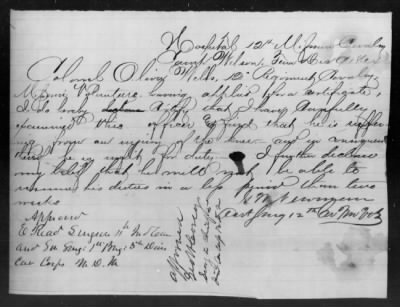 Hospital 12th Missouri Cavalry
Camp Wilson, Tenn
Colonel Oliver Wells, 12" Regiment Cavalry
Missouri Volunteers having applied for a certificate,
I do hereby certify that I have carefully
examined this officer & find that he is suffer
ing from an injury of the knee and in consequence
thereof he is unfit for duty. I further declare
my belief that he will not be able to
resume his duties in a less period than two
weeks
Asst Surg 12th Cav Mo Vols
Approved
E Read Surgeon
and Surg 1st Brig 5th Divis
Cav Corps M. D. M
Approved